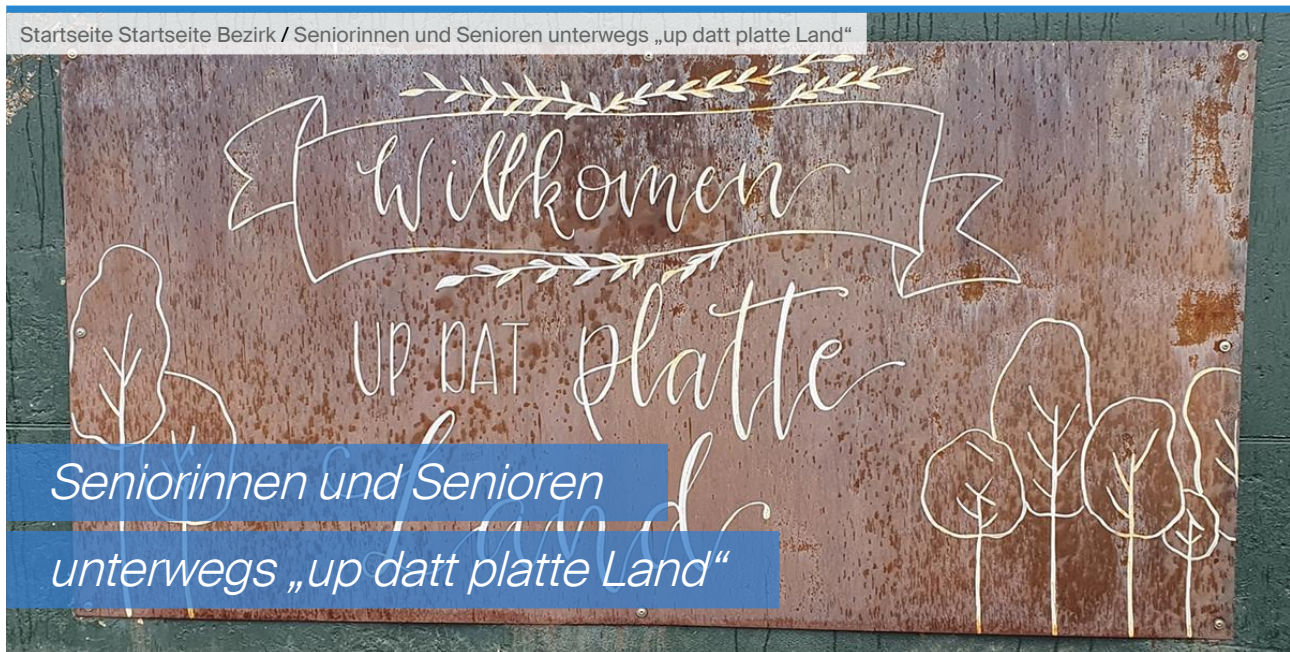 Startseite Startseite Bezirk / Seniorinnen und Senioren unterwegs „up datt platte Land“
Willkomen
UP DAT platte
Land
Seniorinnen und Senioren
unterwegs „up datt platte Land“